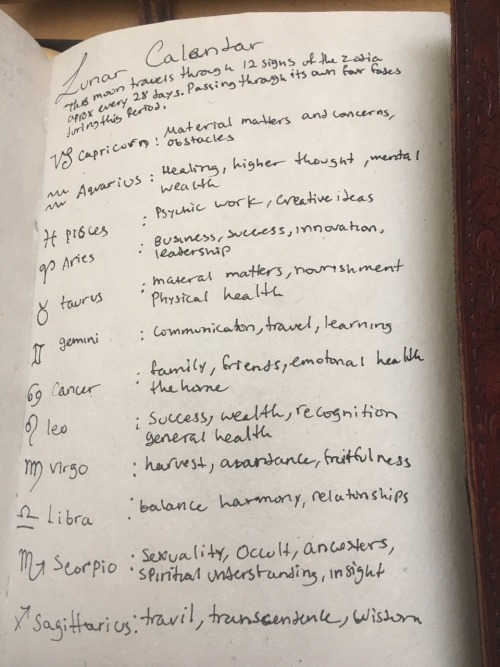 Lunar Calantar
This moon travels through 12 signs of the zodia
aprox every 28 days. Passing through its own four fases
during this Period.
♑ Capricorn: Material matters and concerns,
obstacles
♒ Aquarius: Healing, higher thought, mental
wealth
♓ Pisces : Psychic work, creative ideas
♈ Aries : Business, success, innovation,
leadership
♉ taurus : materal matters, nourishment
Physical health
♊ gemini : communicaton, travel, learning
♋ Cancer : family, friends, emotonal health
the home
♌ leo : Success, wealth, recognition
general health
♍ Virgo : harvest, abandance, fruitfulness
♎ Libra : balance harmony, relatonships
♏ Scorpio : Sexuality, Occult, ancesters,
spiritual understanding, insight
♐ Sagittarius: travil, transcentence, Wistom